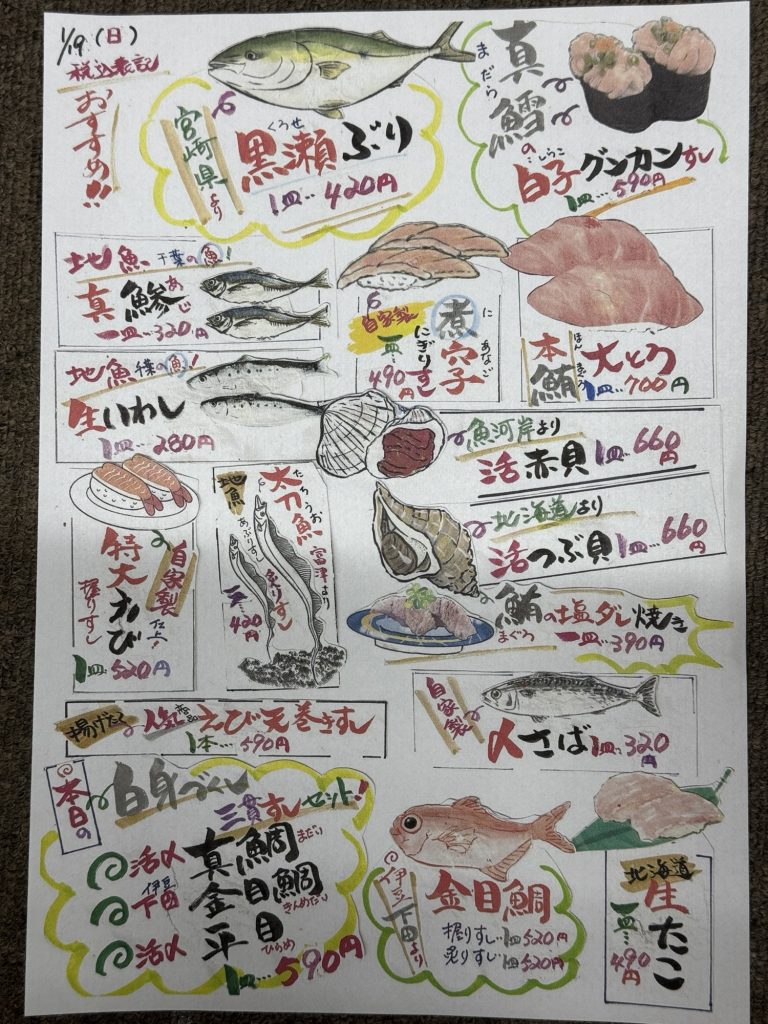 1/19(日)
税込表記
おすすめ!!
宮崎県より
くろせ
黒瀬ぶり
1皿…420円
まだら
真鱈の
しらこ
白子グンカンすし
1皿…590円
地魚 千葉の魚!
真鯵
あじ
一皿…320円
自家製
煮穴子
に あなご
にぎりすし
一皿…490円
本鮪
ほん まぐろ
大とろ
1皿…700円
地魚 千葉の魚!
生いわし
1皿…280円
魚河岸より
活赤貝 1皿…660円
北海道より
活つぶ貝 1皿…660円
自家製
仕上げ
特大えび
握りすし
1皿…520円
地魚
太刀魚
たちうお
富津より
炙りすし
あぶりすし
一皿…420円
鮪の塩ダレ焼き
まぐろ
一皿…390円
揚げたて 人気商品 えび天巻きすし
1本…590円
自家製
〆さば 1皿…320円
本日の
白身づくし
三貫すしセット!
活〆 真鯛 まだい
伊豆
下田 金目鯛 きんめだい
活〆 平目 ひらめ
1皿…590円
伊豆下田より
金目鯛
握りすし…1皿520円
炙りすし…1皿520円
北海道
生たこ
一皿…490円